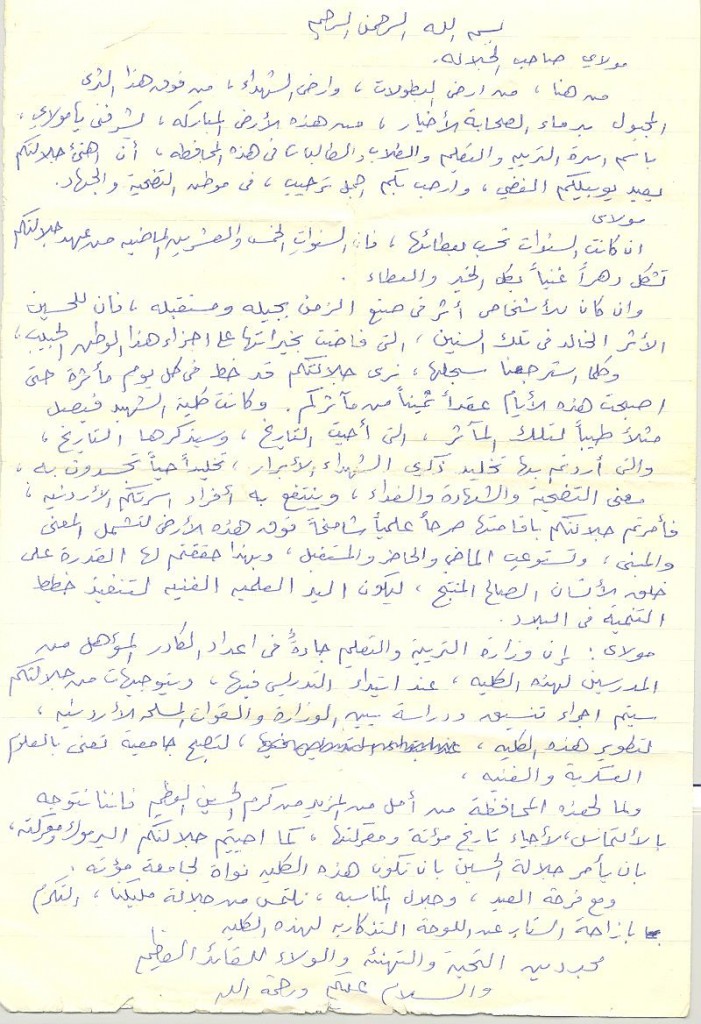 بسم الله الرحمن الرحيم
مولاي صاحب الجلالة.
من هنا ، من ارض البطولات ، وارض الشهداء ، من فوق هذا الثرى
المجبول بدماء الصحابة الأخيار ، من هذه الأرض المباركه ، يشرفني يا مولاي ،
باسم اسرة التربيه والتعليم والطلاب والطالبات في هذه المحافظه ، أن اهنئ جلالتكم
بعيد يوبيلكم الفضي ، وارحب بكم اجمل ترحيب ، في موطن التضحية والجهاد.
مولاى
ان كانت السنوات تحسب بعطائها ، فان السنوات الخمس والعشرين الماضيه من عهد جلالتكم
تشكل دهراً غنياً بكل الخير والعطاء .
وان كان للأشخاص أثر في صنع الزمن بجيله ومستقبله ، فان للحسين
الأثر الخالد في تلك السنين ، التي فاضت بخيراتها على اجزاء هذا الوطن الحبيب ،
وكلما استرجعنا سجلها ، نرى جلالتكم قد خط في كل يوم مأثرة حتى
اصبحت هذه الأيام عقداً ثميناً من مآثركم . وكانت كلية الشهيد فيصل
مثلاً طيباً لتلك المآثر ، التي أحيت التاريخ ، وسيذكرها التاريخ ،
والتي أردتم بها تخليد ذكرى الشهداء الأبرار ، تخليداً حياً تجسدون به ،
معنى التضحية والشهادة والفداء ، وينتفع به أفراد اسرتكم الأردنيه ،
فأمرتم جلالتكم باقامتها صرحاً علمياً شامخاً فوق هذه الأرض لتشمل المعنى
والمبنى ، وتستوعب الماضي والحاضر والمستقبل ، وبهذا حققتم لها القدرة على
خلق الأنسان الصالح المنتج ، ليكون اليد العلميه الفنيه لتنفيذ خطط
التنمية في البلاد .
مولاى : إن وزارة التربية والتعليم جادةٌ في اعداد الكادر المؤهل من
المدرسين لهذه الكليه ، عند ابتداء التدريس فيها ، وبتوجيهات من جلالتكم
سيتم اجراء تنسيق ودراسة بين الوزارة والقوات المسلحه الأردنيه ،
لتطوير هذه الكليه ، لتصبح جامعية تعنى بالعلوم
العسكرية والفنيه ،
ولما لهذه المحافظة من أمل من المزيد من كرم الحسين العظيم فاننا نتوجه
بالألتماس ، لأحياء تاريخ مؤتة ومعركتها ، كما احييتم جلالتكم اليرموك ومعركته ،
بان يأمر جلالة الحسين بان تكون هذه الكليه نواة لجامعة مؤته .
ومع فرحة العيد ، وجلال المناسبه ، نلتمس من جلالة مليكنا ، التكرم
بازاحة الستار عن اللوحة التذكاريه لهذه الكليه
مجددين التحية والتهنئه والولاء للقائد العظيم
والسلام عليكم ورحمة الله